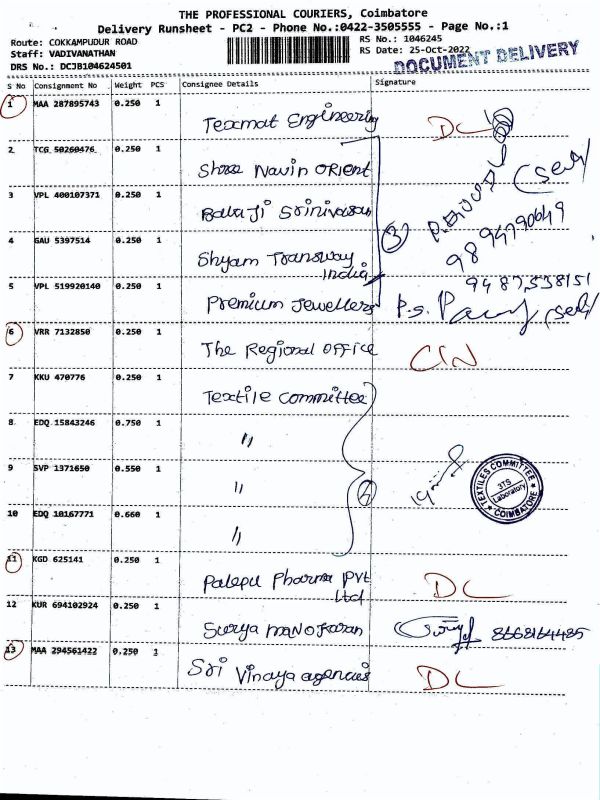 THE PROFESSIONAL COURIERS, Coimbatore
Delivery Runsheet - PC2 - Phone No.:0422-3505555 - Page No.:1
Route: COKKAMPUDUR ROAD
RS No.: 1046245
Staff: VADIVANATHAN
RS Date: 25-Oct-2022
DOCUMENT DELIVERY
DRS No.: DCJB104624501
S No Consignment No Weight PCS Consignee Details Signature
1 MAA 287895743 0.250 1 Texmat Engineering DL
2 TCG 50260476 0.250 1 Shree Navin Orient
3 VPL 400107371 0.250 1 Balaji Srinivasan
(3) (Self)
9894790649
4 GAU 5397514 0.250 1 Shyam Transway India
9487538151
5 VPL 519920140 0.250 1 Premium Jewellers (Self)
6 VRR 7132850 0.250 1 The Regional Office CIN
7 KKU 470776 0.250 1 Textile Committee
8 EDQ 15843246 0.750 1 "
9 SVP 1371650 0.550 1 "
TEXTILES COMMITTEE
3TS
Laboratory
COIMBATORE
10 EDQ 10167771 0.660 1 "
11 KGD 625141 0.250 1 Palepu Pharma Pvt Ltd DL
12 KUR 694102924 0.250 1 Surya Manoharan 8668164485
13 MAA 294561422 0.250 1 Sri Vinaya agencies DL